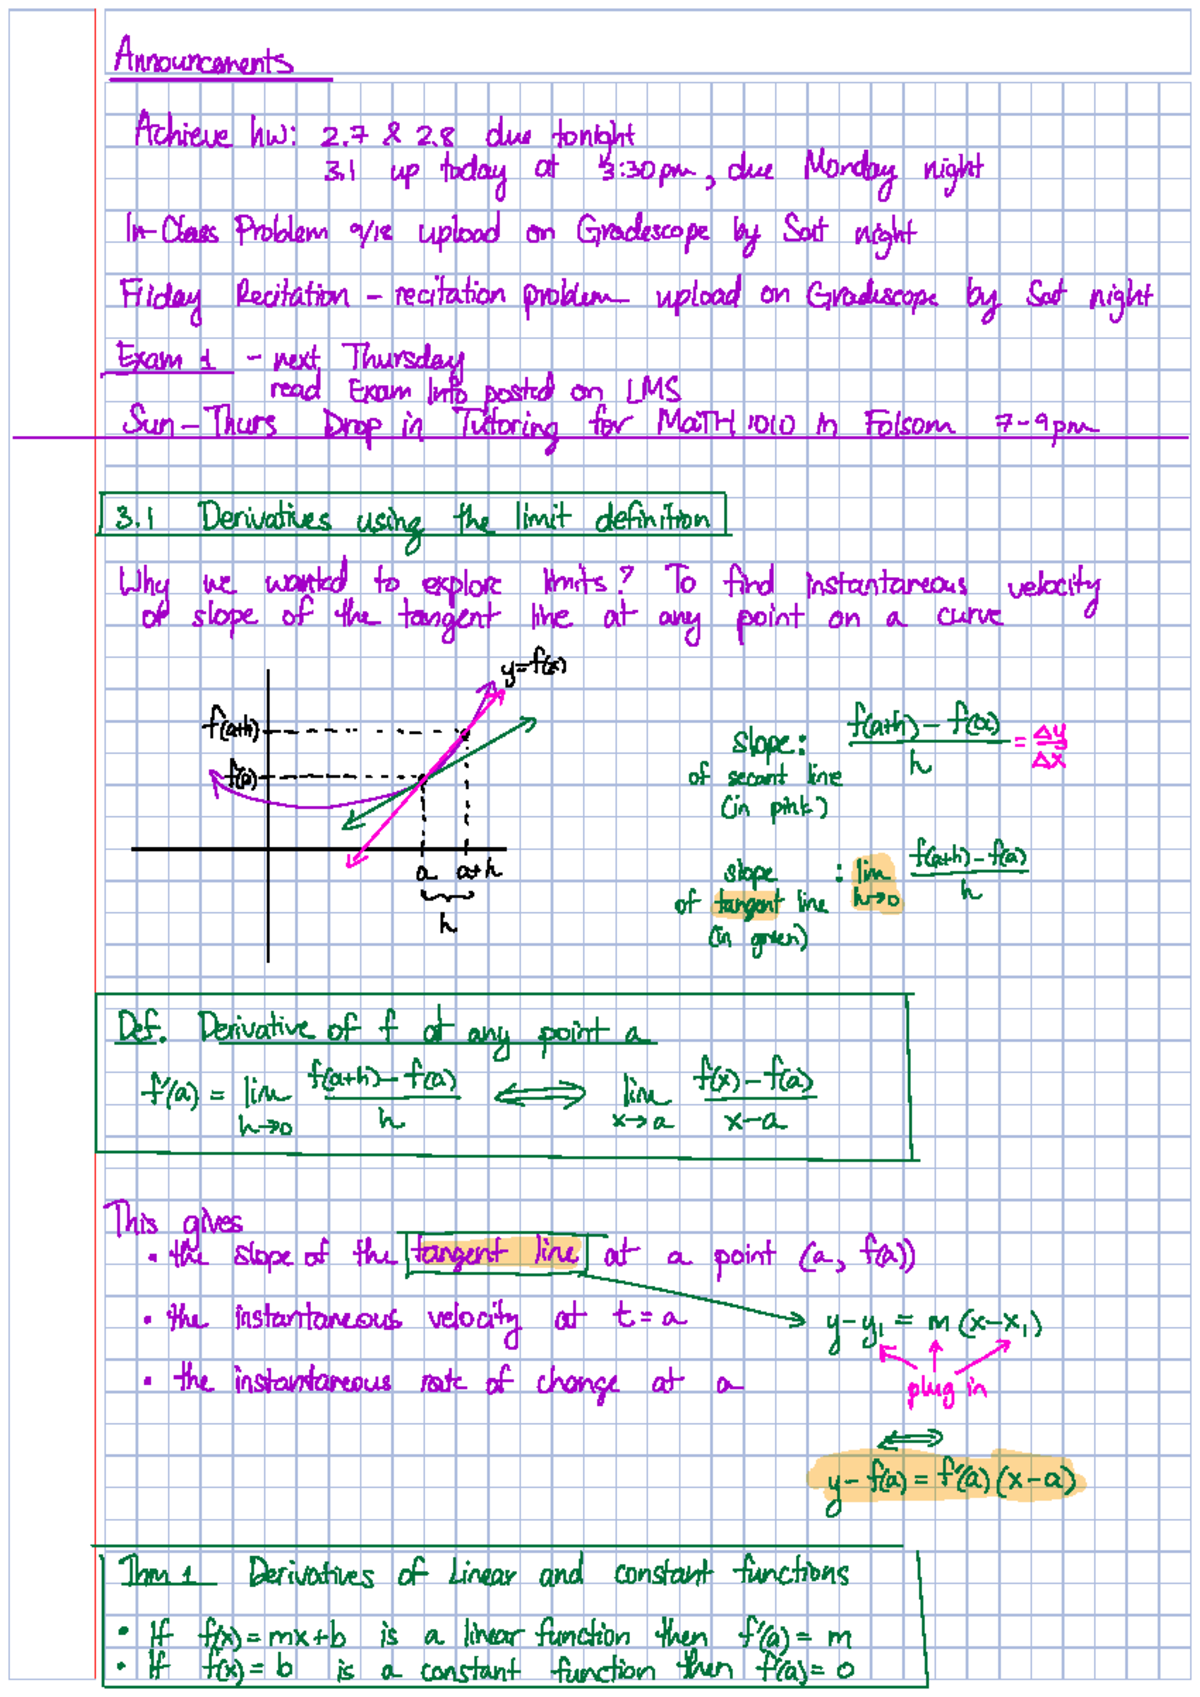 Announcements
Achieve hw: 2.7 & 2.8 due tonight
3.1 up today at 3:30pm, due Monday night
In-Class Problem 9/18 upload on Gradescope by Sat night
Friday Recitation - recitation problem upload on Gradescope by Sat night
Exam 1 - next Thursday
read Exam Info posted on LMS
Sun-Thurs Drop in Tutoring for MATH 1010 in Folsom 7-9pm
3.1 Derivatives using the limit definition
Why we wanted to explore limits? To find instantaneous velocity
of slope of the tangent line at any point on a curve
y=f(x)
f(a+h)
f(a)
a a+h
h
slope: f(a+h)-f(a) / h = Δy/Δx
of secant line
(in pink)
slope : lim h→0 f(a+h)-f(a) / h
of tangent line
(in green)
Def. Derivative of f at any point a
f'(a) = lim h→0 f(a+h)-f(a) / h ⟺ lim x→a f(x)-f(a) / x-a
This gives
• the slope of the tangent line at a point (a, f(a))
• the instantaneous velocity at t=a
y-y₁ = m(x-x₁)
• the instantaneous rate of change at a
plug in
⟺
y-f(a) = f'(a)(x-a)
Thm 1 Derivatives of Linear and constant functions
• If f(x)=mx+b is a linear function then f'(a)=m
• If f(x)=b is a constant function then f'(a)=0